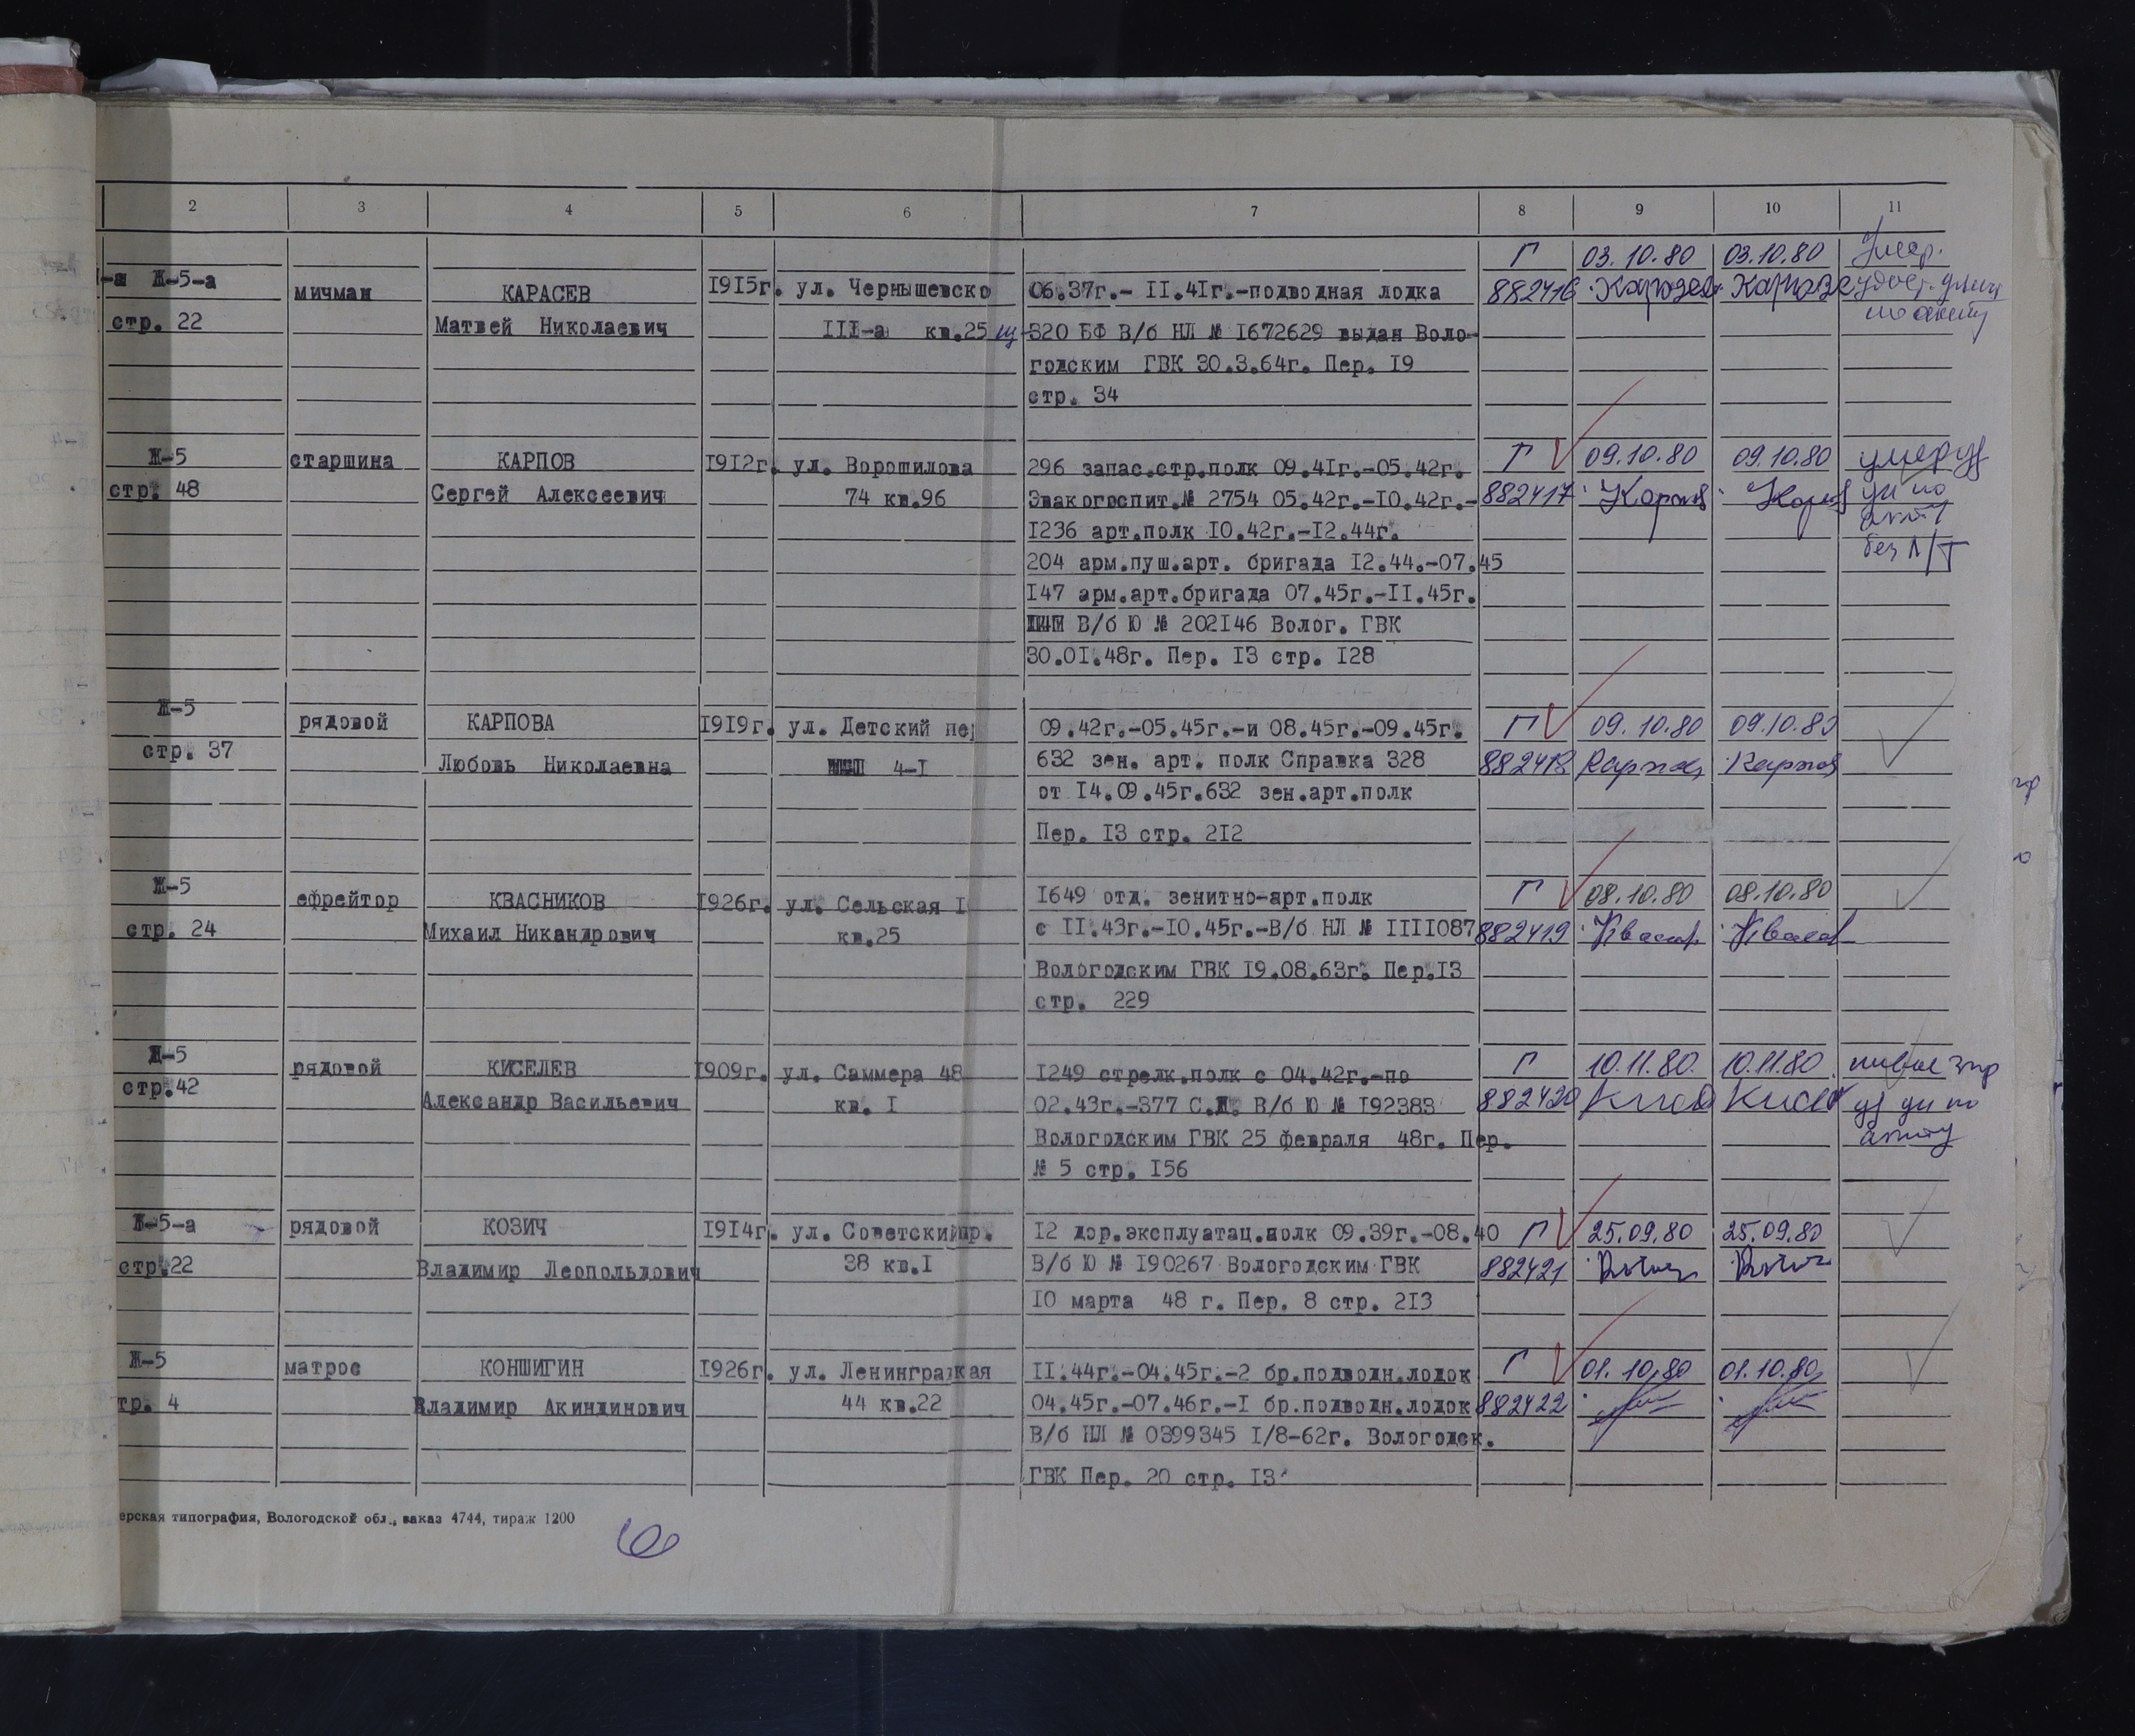 2 3 4 5 6 7 8 9 10 11
Ж-5-а мичман КАРАСЕВ 1915г. ул. Чернышевско 06.37г.- II.4Iг.-подводная лодка Г 03.10.80 03.10.80 Умер.
стр. 22 Матвей Николаевич III-а кв.25 щ-320 БФ В/б НЛ № I672629 выдан Воло- 882416
годским ГВК 30.3.64г. Пер. I9
стр. 34
Ж-5 старшина КАРПОВ I9I2г. ул. Ворошилова 296 запас.стр.полк 09.4Iг.-05.42г. Г 09.10.80 09.10.80
стр. 48 Сергей Алексеевич 74 кв.96 Эвакогоспит.№ 2754 05.42г.-I0.42г.- 882417 Карпов
I236 арт.полк I0.42г.-I2.44г.
204 арм.пуш.арт. бригада I2.44.-07.45
I47 арм.арт.бригада 07.45г.-II.45г.
В/б Ю № 202I46 Волог. ГВК
30.0I.48г. Пер. I3 стр. I28
Ж-5 рядовой КАРПОВА I9I9г. ул. Детский пе 09.42г.-05.45г.-и 08.45г.-09.45г. Г 09.10.80 09.10.80
стр. 37 Любовь Николаевна 4-I 632 зен. арт. полк Справка 328 882418
от I4.09.45г.632 зен.арт.полк
Пер. I3 стр. 2I2
Ж-5 ефрейтор КВАСНИКОВ I926г. ул. Сельская I I649 отд. зенитно-арт.полк Г 08.10.80 08.10.80
стр. 24 Михаил Никандрович кв.25 с II.43г.-I0.45г.-В/б НЛ № IIII087 882419
Вологодским ГВК I9.08.63г. Пер.I3
стр. 229
Ж-5 рядовой КИСЕЛЕВ I909г. ул. Саммера 48 I249 стрелк.полк с 04.42г.-по Г 10.11.80. 10.11.80
стр.42 Александр Васильевич кв. I 02.43г.-377 С.Д. В/б Ю № I92383 882420
Вологодским ГВК 25 февраля 48г. Пер.
№ 5 стр. I56
Ж-5-а рядовой КОЗИЧ I9I4г. ул. Советский пр. I2 дор.эксплуатац.полк 09.39г.-08.40 Г 25.09.80 25.09.80
стр.22 Владимир Леопольдович 38 кв.I В/б Ю № I90267 Вологодским ГВК 882421
I0 марта 48 г. Пер. 8 стр. 2I3
Ж-5 матрос КОНШИГИН I926г. ул. Ленинградкая II.44г.-04.45г.-2 бр.подводн.лодок Г 01.10.80 01.10.80
тр. 4 Владимир Акиндинович 44 кв.22 04.45г.-07.46г.-I бр.подводн.лодок 882422
В/б НЛ № 0399345 I/8-62г. Вологодск.
ГВК Пер. 20 стр. I3
ерская типография, Вологодской обл., заказ 4744, тираж 1200